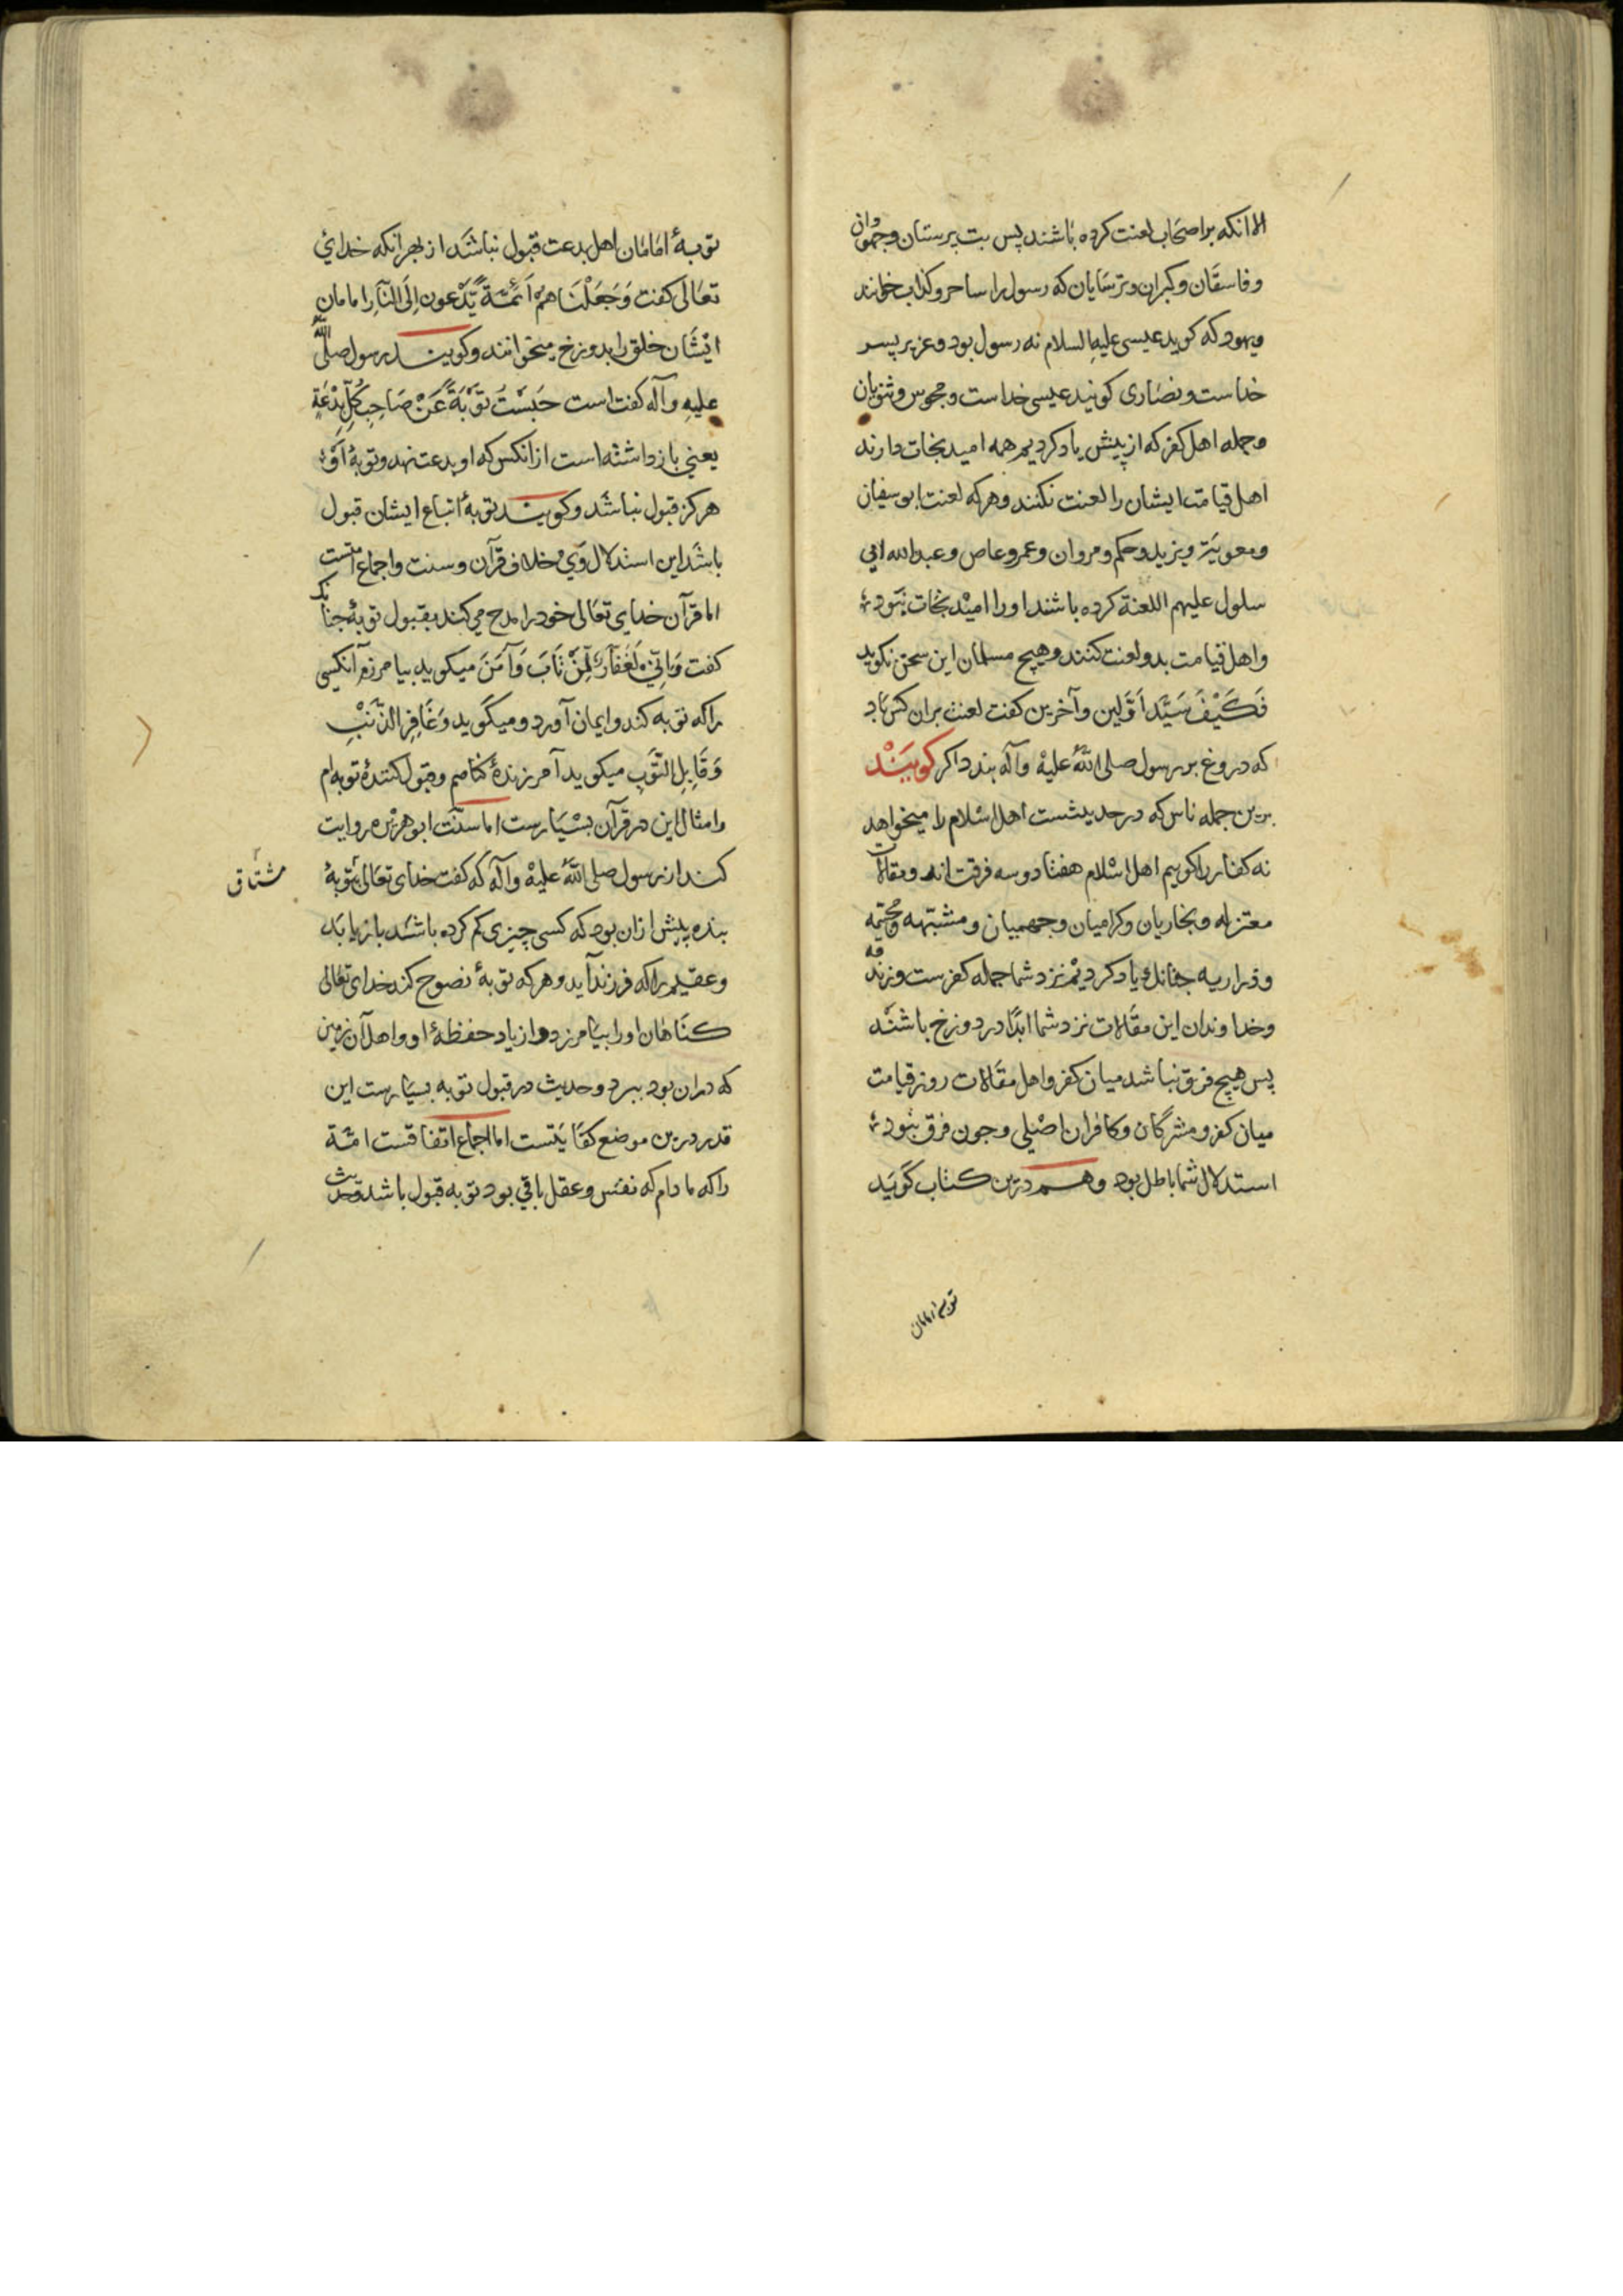 الا انکه بر اصحاب لعنت کرده باشند پس بت پرستان وجهودان
وفاسقان وکبران وترسایان که رسول را ساحر وکذاب خوانند
ویهود که کوید عیسی علیه السلام نه رسول بود وعزیر پسر
خداست ونصاری کویند عیسی خداست ومجوس وثنویان
وجمله اهل کفر که از پیش یاد کردیم همه امید نجات دارند
اهل قیامت ایشان را لعنت نکنند وهر که لعنت ابو سفیان
ومعویة ویزید وحکم ومروان وعمرو عاص وعبد الله ابی
سلول علیهم اللعنة کرده باشند او را امید نجات نبود
واهل قیامت بدو لعنت کنند وهیچ مسلمان این سخن نکوید
فَکَیْفَ سَیّد اَوّلین وآخرین کفت لعنت بران کس باد
که دروغ بر رسول صلی الله علیه وآله بندد اکر کویند
برین جمله ناس که در حدیثست اهل اسلام را میخواهد
نه کفار را کوییم اهل اسلام هفتاد وسه فرقت اند ومقالات
معتزله ونجاریان وکرامیان وجهمیان ومشبهه ومجسمه
وضراریه جنانک یاد کردیم نزد شما جمله کفرست وزندقه
وخداوندان این مقالات نزد شما ابدًا در دوزخ باشند
پس هیچ فرق نباشد میان کفر واهل مقالات روز قیامت
میان کفر ومشرکان وکافران اصلی وجون فرق نبود
استدلال شما باطل بود وهم درین کتاب کوید
توبه امامان
توبهٔ امامان اهل بدعت قبول نباشد از بهر انکه خدای
تعالی کفت وَجَعَلْنَاهُمْ اَئِمَّةً یَّدْعون اِلَی النَّارِ امامان
ایشان خلق را بدوزخ میخوانند وکویند رسول صلی الله
علیه وآله کفت است حَبَسْتُ تَوْبَةً عَنْ صَاحِبِ کُلِّ بِدْعَةٍ
یعنی باز داشته است از انکس که او بدعت نهد وتوبهٔ او
هرکز قبول نباشد وکویند توبهٔ اتباع ایشان قبول
باشد این استدلال وی خلاف قرآن وسنت واجماع امتست
اما قرآن خدای تعالی خود را مدح می کند بقبول توبه جنانک
کفت وَاِنِّی لَغَفَّارٌ لِّمَنْ تَابَ وَآمَنَ میکوید بیامرزم آنکسی
را که توبه کند وایمان آورد ومیکوید وَغَافِرِ الذَّنْبِ
وَقَابِلِ التَّوْبِ میکوید آمرزندهٔ کناهم وقبول کنندهٔ توبه ام
وامثال این در قرآن بسیارست اما سنّت ابو هریره روایت
کند از رسول صلی الله علیه وآله که کفت خدای تعالی بتوبهٔ
مشتاق
بنده پیش ازان بود که کسی چیزی کم کرده باشد باز یابد
وعقیم را که فرزند آید وهر که توبهٔ نصوح کند خدای تعالی
کناهان او را بیامرزد واز یاد حفظهٔ او واهل آن زمین
که دران بود ببرد وحدیث در قبول توبه بسیارست این
قدر درین موضع کفایتست اما اجماع اتفاقست امّة
را که مادام که نفس وعقل باقی بود توبه قبول باشد وحدیث